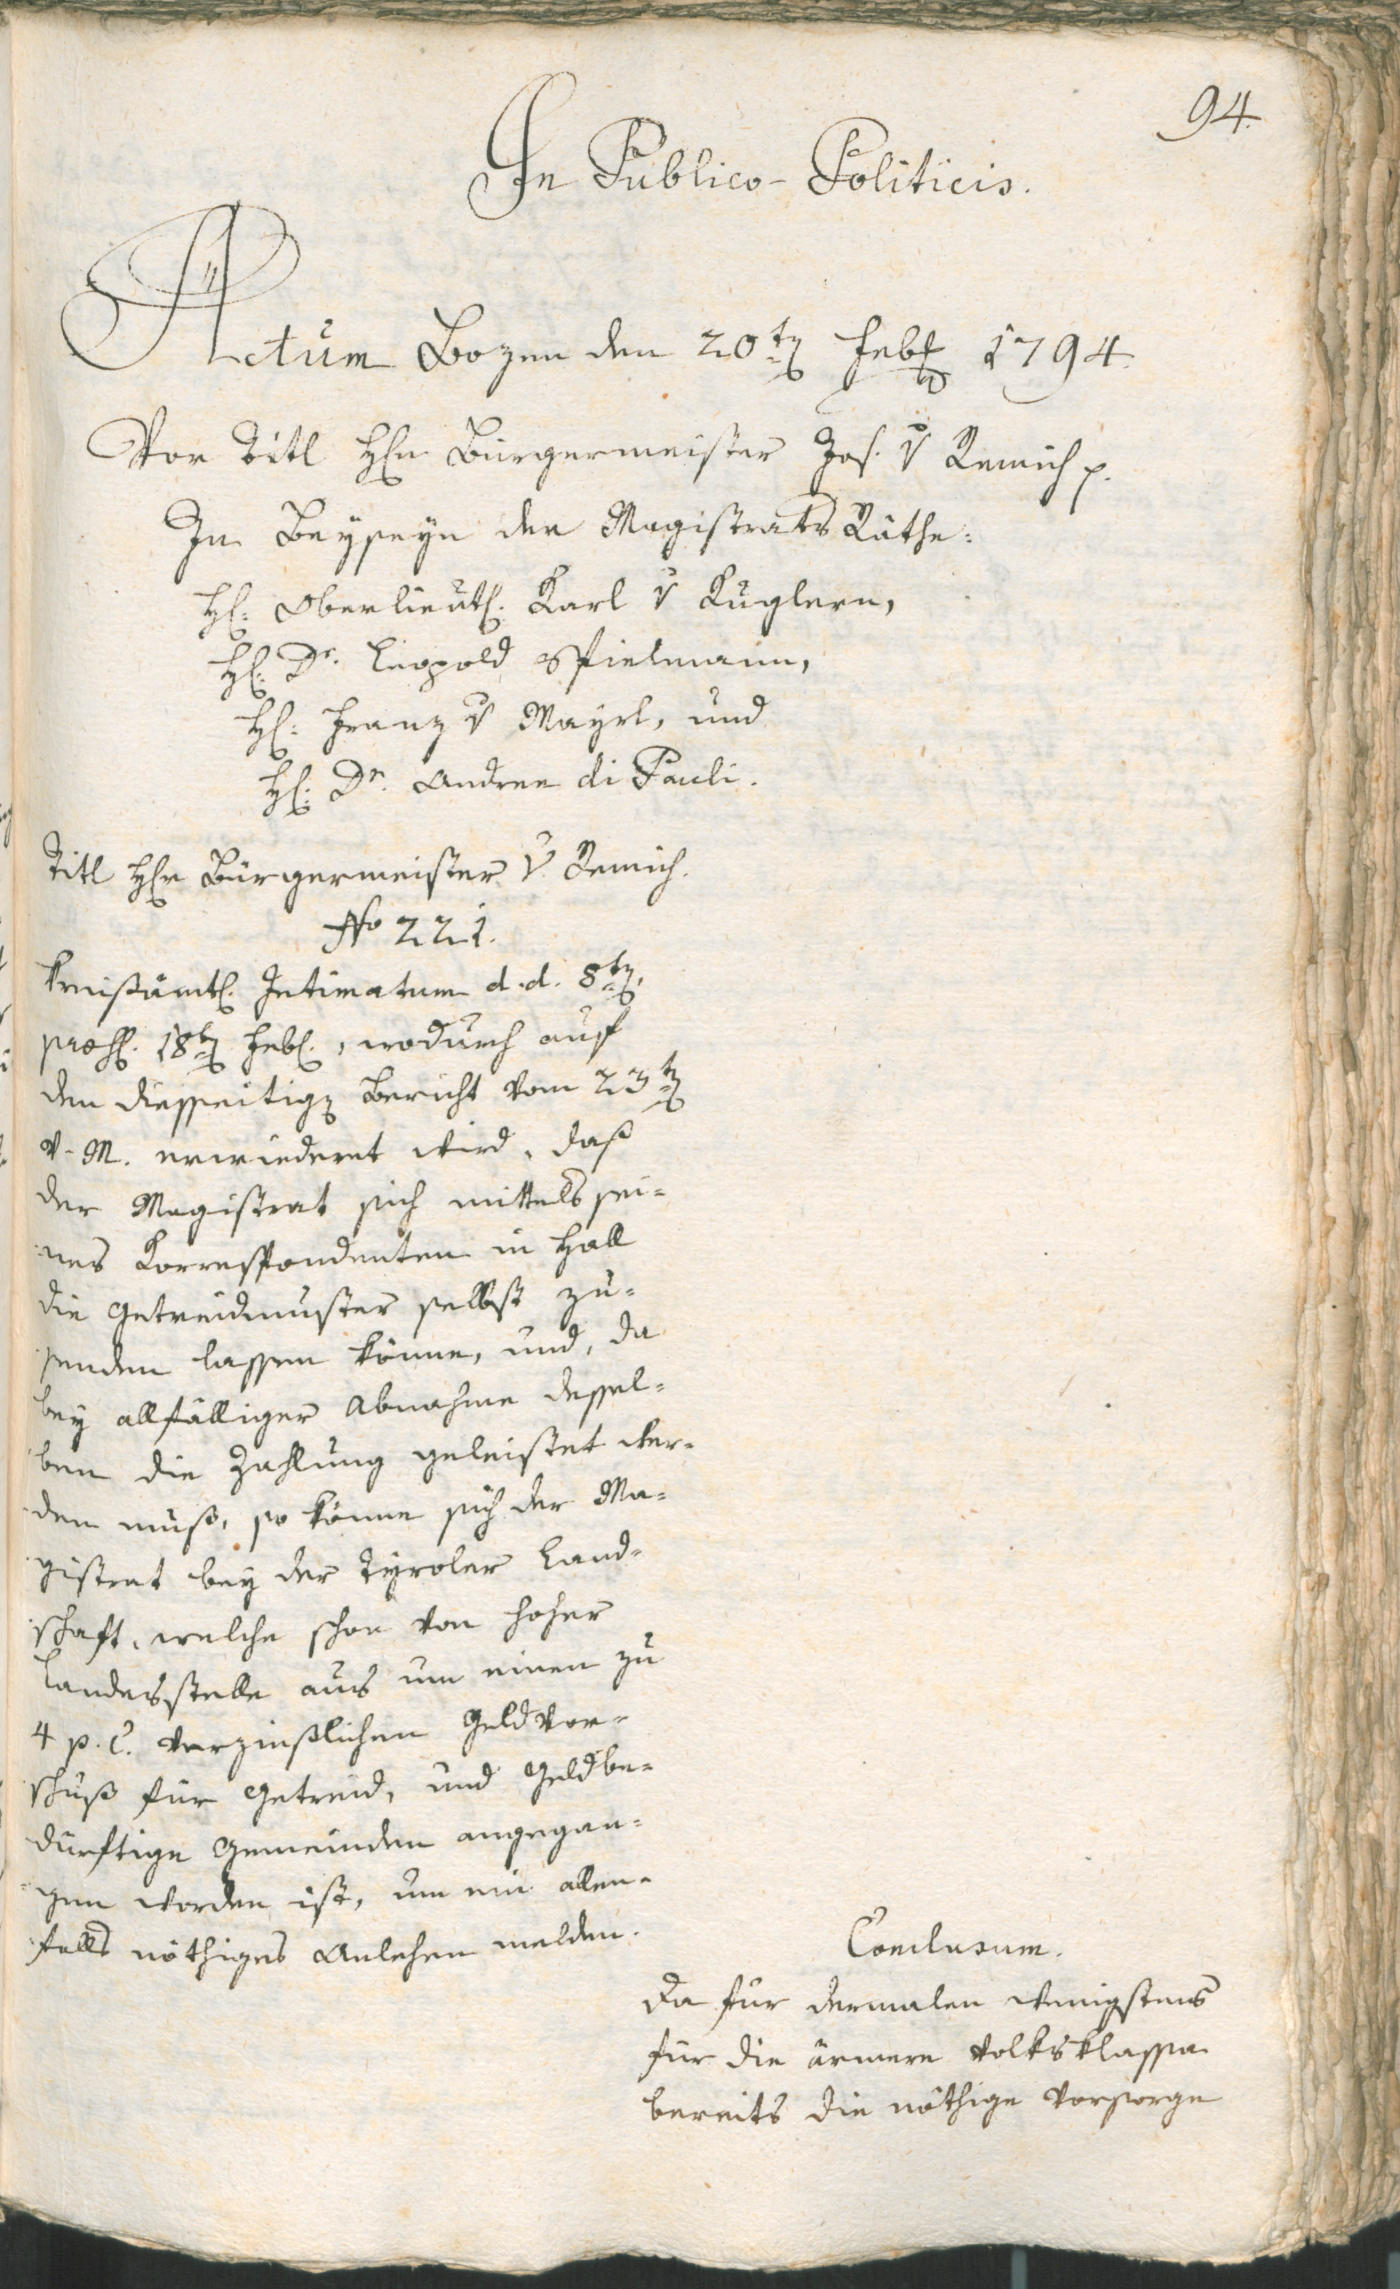 94.
In Publico-Politicis.
Actum Bozen den 20ten Febr 1794.
Vor Titl Hln Bürgermeister Jos. v Remich p.
In Beyseyn der Magistrats Räthe:
Hl: Oberlieut. Karl v Kuglern,
Hl: Dr. Leopold Spielmann,
Hl: Franz v Mayrl, und
Hl: Dr. Andree di Pauli.
Titl Hln Bürgermeister v Remich.
No 221.
Kreisämtl. Intimatum d. d. 8ten,
præs. 18ten Febr., wodurch auf
den diesseitigen Bericht vom 23ten
v. M. erwiedert wird, daß
der Magistrat sich mittels sei-
nes Korrespondenten in Hall
die Getreidmuster selbst zu-
senden lassen könne, und, da
bey allfälliger Abnahme dessel-
ben die Zahlung geleistet wer-
den muß, so könne sich der Ma-
gistrat bey der Tyroler Land-
schaft, welche schon von hoher
Landesstelle aus um einen zu
4 p. C. verzinßlichen Geldvor-
schuß für Getreid, und Geldbe-
dürftige Gemeinden angegan-
gen worden ist, um ein allen-
falls nöthiges Anlehen melden.
Conclusum.
Da für dermalen wenigstens
für die ärmere Volksklasse
bereits die nöthige Vorsorge